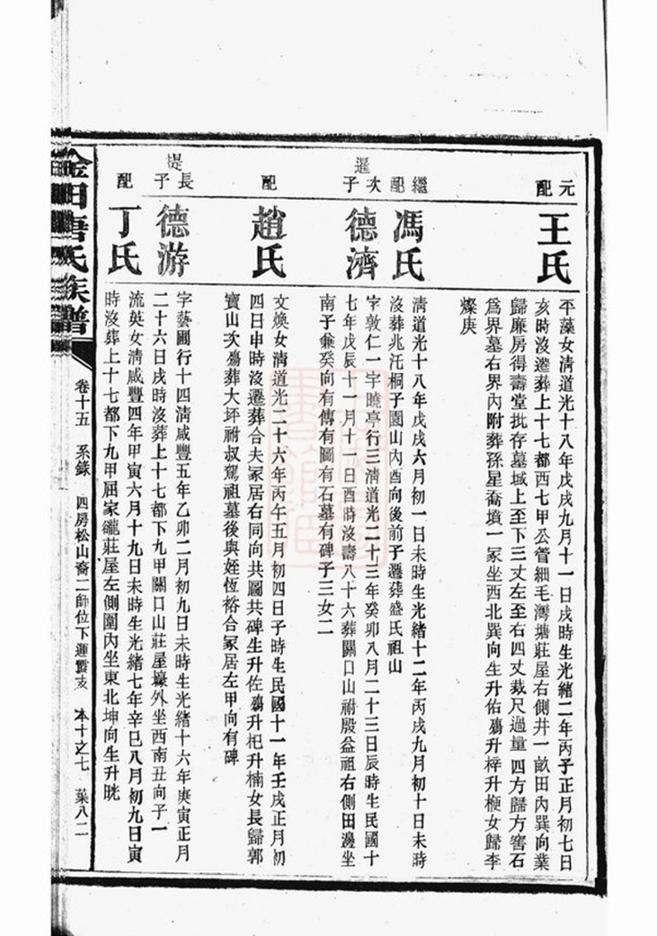 元配
王氏
平藻女清道光十八年戊戌九月十一日戌時生光緒二年丙子正月初七日
亥時沒遷葬上十七都西七甲公管細毛灣塘莊屋右側井一畝田內巽向業
歸廉房得壽堂批存墓域上至下三丈左至右四丈裁尺過量四方歸方窖石
爲界墓右界內附葬孫星喬墳一冢坐西北巽向生升佑殤升梓升楩女歸李
燦庚
繼配
馮氏
清道光十八年戊戌六月初一日未時生光緒十二年丙戌九月初十日未時
沒葬兆汑桐子園山內酉向後前子遷葬盛氏祖山
暹次子
德濟
字敦仁一字曉亭行三清道光二十三年癸卯八月二十三日辰時生民國十
七年戊辰十一月十一日酉時沒壽八十六葬關口山祔殷益祖右側田邊坐
南子兼癸向有傳有圖有石墓有碑子三女二
配
趙氏
文煥女清道光二十六年丙午五月初四日子時生民國十一年壬戌正月初
四日申時沒遷葬合夫冢居右同向共圖共碑生升佐殤升杞升楠女長歸郭
寶山次殤葬大坪祔叔駕祖墓後與姪恆裕合冢居左甲向有碑
禔長子
德游
字藝圃行十四清咸豐五年乙卯二月初九日未時生光緒十六年庚寅正月
二十六日戌時沒葬上十七都下九甲關口山莊屋壕外坐西南丑向子一
配
丁氏
流英女清咸豐四年甲寅六月十九日未時生光緒七年辛巳八月初九日寅
時沒葬上十七都下九甲屈家瓏莊屋左側園內坐東北坤向生升晄
金田唐氏族譜
卷十五
系錄
四房松山裔二師位下運質支
本十之七
葉八二